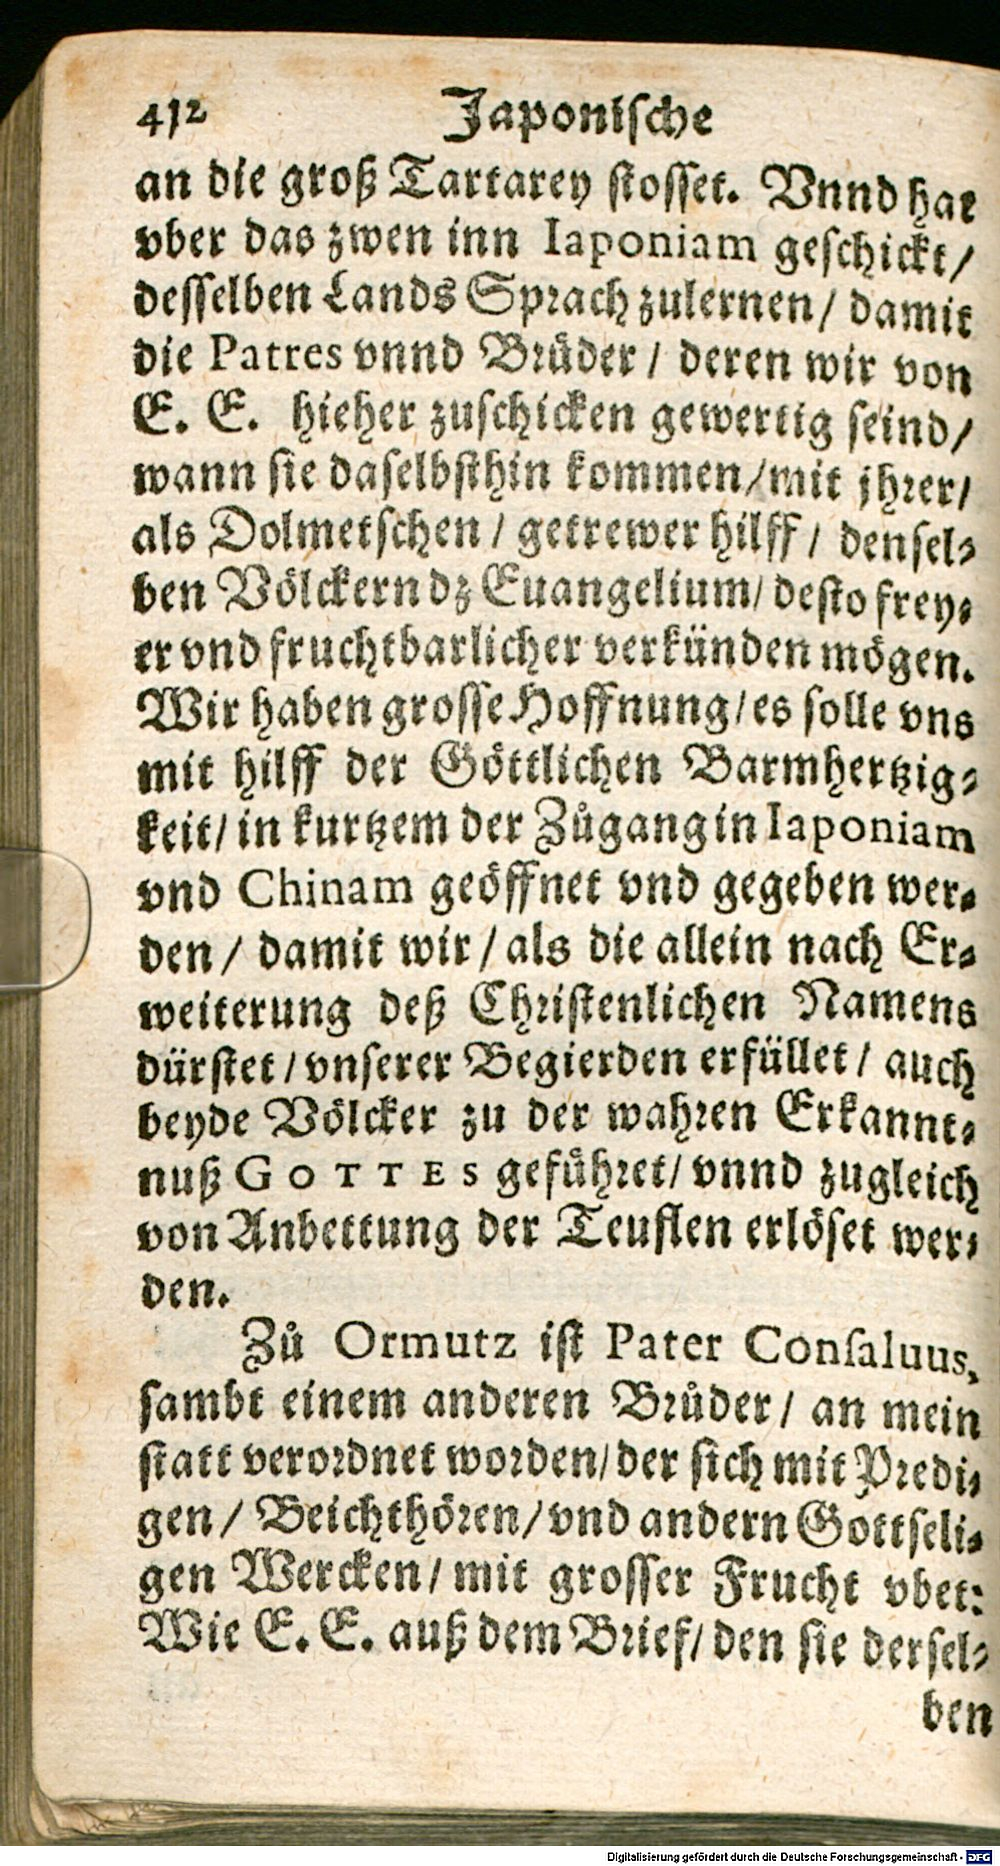 412 Japonische
an die groß Tartarey stosset. Vnnd hat
vber das zwen inn Iaponiam geschickt/
desselben Lands Sprach zulernen/ damit
die Patres vnnd Brůder/ deren wir von
E. E. hieher zuschicken gewertig seind/
wann sie daselbsthin kommen/mit jhrer/
als Dolmetschen/ getrewer hilff/ densel⸗
ben Völckern dz Euangelium/ desto frey⸗
er vnd fruchtbarlicher verkünden mögen.
Wir haben grosse Hoffnung/es solle vns
mit hilff der Göttlichen Barmhertzig⸗
keit/ in kurtzem der Zůgang in Iaponiam
vnd Chinam geöffnet vnd gegeben wer⸗
den/ damit wir/ als die allein nach Er⸗
weiterung deß Christenlichen Namens
dürstet/ vnserer Begierden erfüllet/ auch
beyde Völcker zu der wahren Erkannt⸗
nuß GOTTES gefůhret/ vnnd zugleich
von Anbettung der Teuflen erlöset wer⸗
den.
Zů Ormutz ist Pater Conſaluus,
sambt einem anderen Brůder/ an mein
statt verordnet worden/der sich mit Predi⸗
gen/ Beichthören/vnd andern Gottseli⸗
gen Wercken/ mit grosser Frucht vbet:
Wie E. E. auß dem Brief/ den sie dersel⸗
ben
Digitalisierung gefördert durch die Deutsche Forschungsgemeinschaft - DFG